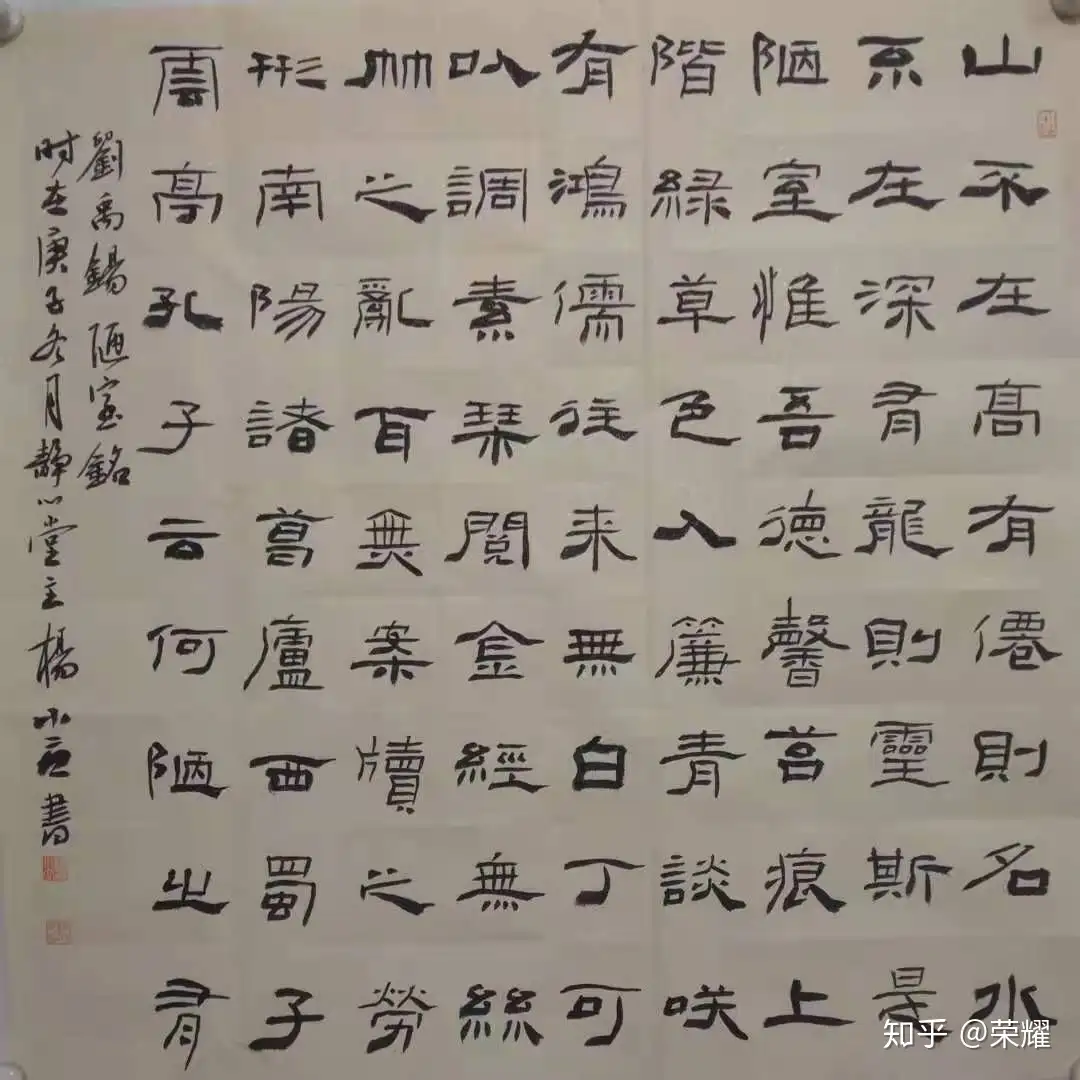 山不在髙有僊則名水
不在深有龍則靈斯是
陋室惟吾德馨苔痕上
階緑草色入簾青談咲
有鴻儒往来無白丁可
以調素琴閱金經無絲
竹之亂耳無案牘之勞
形南陽諸葛廬西蜀子
雲亭孔子云何陋之有
劉禹錫陋室銘
时在庚子冬月静心堂主楊小書
知乎 @荣耀